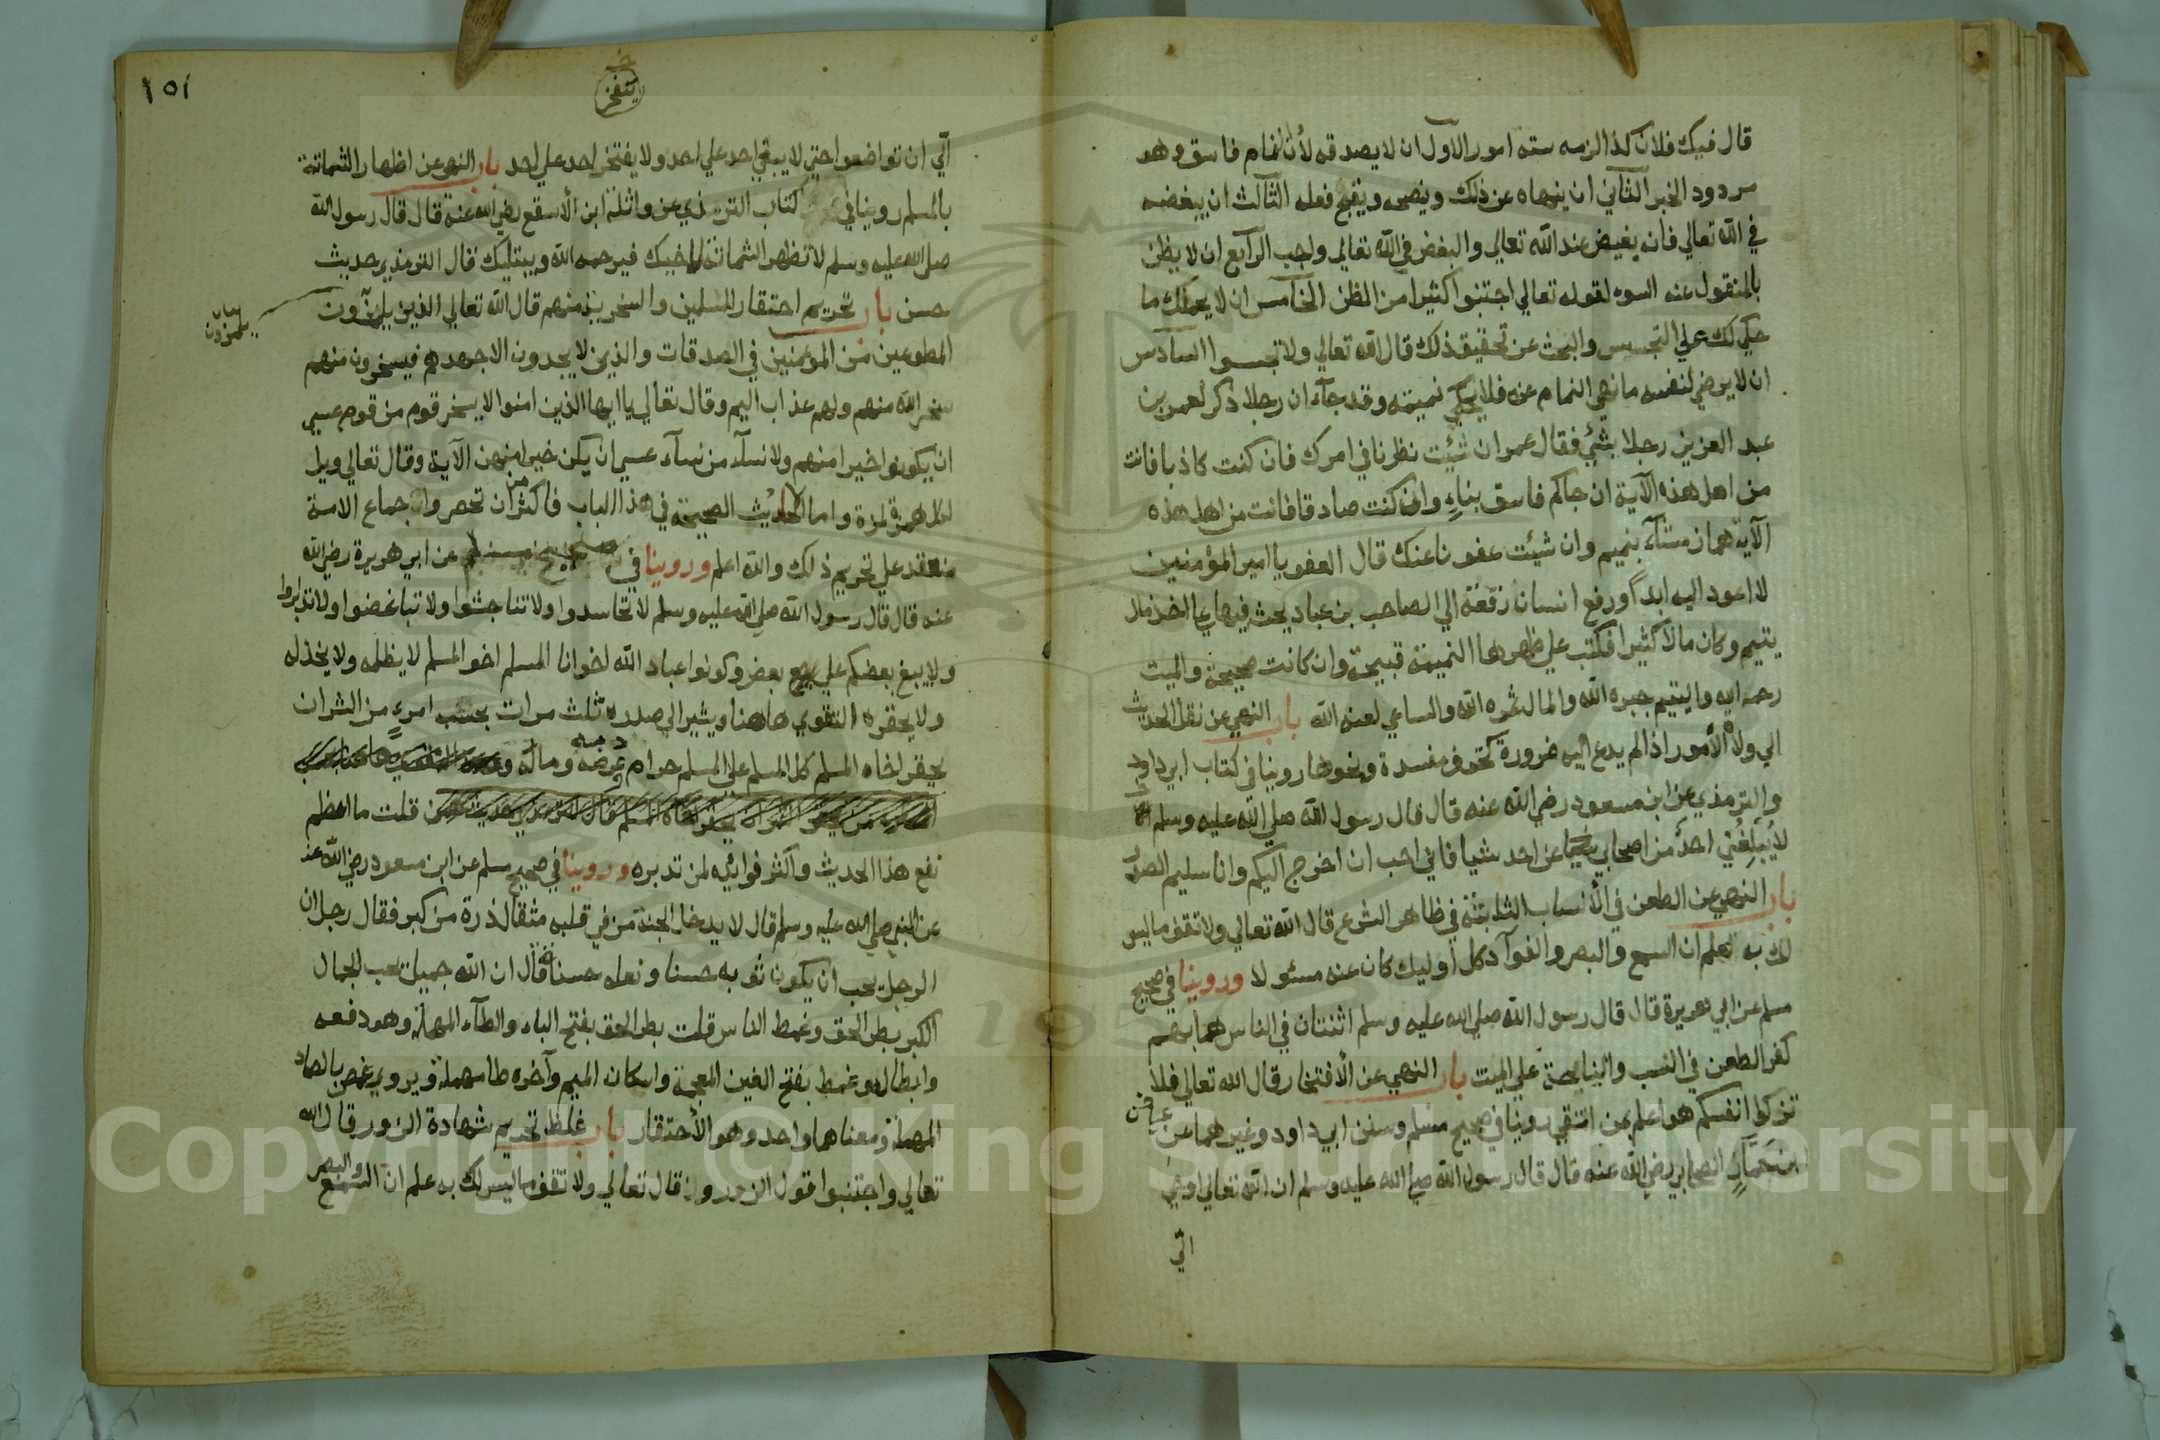 قال فيك فلان كذا لزمه ستة امور الاول ان لا يصدقه لأن النمام فاسق وهو
مردود الخبر الثاني ان ينهاه عن ذلك وينصحه ويقبح فعله الثالث ان يبغضه
في الله تعالي فانه بغيض عند الله تعالي والبغض في الله تعالي واجب الرابع ان لا يظن
بالمنقول عنه السوء لقوله تعالي اجتنبوا كثيرا من الظن الخامس ان لا يحملك ما
حكي لك علي التجسس والبحث عن تحقيق ذلك قال الله تعالي ولا تجسسوا السادس
ان لا يرضي لنفسه ما نهي النمام عنه فلا يحكي نميمته وقد جآء ان رجلا ذكر لعمر بن
عبد العزيز رجلا بشئ فقال عمر ان شئت نظرنا في امرك فان كنت كاذبا فانت
من اهل هذه الآية ان جاكم فاسق بنباءٍ وان كنت صادقا فانت من اهل هذه
الآية هماز مشآء بنميم وان شيئت عفونا عنك قال العفو يا امير المؤمنين
لا اعود اليه ابدًا ورفع انسان رقعة الي الصاحب بن عباد يحثه فيها علي اخذ مال
يتيم وكان مالا كثيرا فكتب علي ظهرها النميمة قبيحة وان كانت صحيحة والميت
رحمه الله واليتيم جبره الله والمال ثمره الله والساعي لعنه الله باب النهي عن نقل الحديث
الي ولاة الأمور اذا لم يدع اليه ضرورة كخوف مفسدة ونحوها روينا في كتاب ابي داود
والترمذي عن ابن مسعود رضي الله عنه قال قال رسول الله صلي الله عليه وسلم
لا يُبَلِّغُني احدٌ من اصحابي عن احد شيا فاني احب ان اخرج اليكم وانا سليم الصدر
باب النهي عن الطعن في الأنساب الثابتة في ظاهر الشرع قال الله تعالي ولا تقف ما ليس
لك به علم ان السمع والبصر والفوآد كل أوليك كان عنه مسئولا وروينا في صحيح
مسلم عن ابي هريرة قال قال رسول الله صلي الله عليه وسلم اثنتان في الناس هما بهم
كفر الطعن في النسب والنياحة علي الميت باب النهي عن الأفتخار قال الله تعالي فلا
تزكوا انفسكم هو اعلم بمن اتقي روينا في صحيح مسلم وسنن ابي داود وغيرهما عن عياض
بن حمارٍ الصحابي رضي الله عنه قال قال رسول الله صلي الله عليه وسلم ان الله تعالي اوحي
الي
١٥١
يفتخر
الّي ان تواضعوا حتي لا يبغي احد علي احد ولا يفتخر احد علي احد باب النهي عن اظهار الشماتة
بالمسلم روينا في كتاب الترمذي عن واثلة ابن الأسقع رضي الله عنه قال قال رسول الله
صلي الله عليه وسلم لا تظهر الشماتة لاخيك فيرحمه الله ويبتليك قال الترمذي حديث
حسن باب تحريم احتقار المسلمين والسخرية منهم قال الله تعالي الذين يلمزون
المطوعين من المؤمنين في الصدقات والذين لا يجدون الا جهدهم فيسخرون منهم
سخر الله منهم ولهم عذاب اليم وقال تعالي يا ايها الذين امنوا لا يسخر قوم من قوم عسي
ان يكونوا خيرا منهم ولا نسآء من نسآء عسي ان يكن خيرا منهن الآية وقال تعالي ويل
لكل همزة لمزة واما الاحاديث الصحيحة في هذا الباب فاكثر من ان تحصر واجماع الامة
منعقد علي تحريم ذلك والله اعلم وروينا في صحيح مسلم عن ابي هريرة رضي الله
عنه قال قال رسول الله صلي الله عليه وسلم لا تحاسدوا ولا تناجشوا ولا تباغضوا ولا تدابروا
ولا يبغ بعضكم علي بيع بعض وكونوا عباد الله اخوانا المسلم اخو المسلم لا يظلمه ولا يخذله
ولا يحقره التقوي هاهنا ويشير الي صدره ثلث مرات بحسب امرءٍ من الشر ان
يحقر اخاه المسلم كل المسلم علي المسلم حرام دمه وماله وعرضه
قلت ما اعظم
نفع هذا الحديث واكثر فوائده لمن تدبره وروينا في صحيح مسلم عن ابن مسعود رضي الله عنه
عن النبي صلي الله عليه وسلم قال لا يدخل الجنة من في قلبه مثقال ذرة من كبر فقال رجل ان
الرجل يحب ان يكون ثوبه حسنا ونعله حسنة قال ان الله جميل يحب الجمال
الكبر بطر الحق وغمط الناس قلت بطر الحق بفتح الباء والطآء المهملة وهو دفعه
وابطاله وغمط بفتح الغين المعجمة واسكان الميم وآخره طا مهملة ويروي غمص بالصاد
المهملة ومعناهما واحد وهو الأحتقار باب غلظ تحريم شهادة الزور قال الله
تعالي واجتنبوا قول الزور وقال تعالي ولا تقف ما ليس لك به علم ان السمع والبصر
Copyright © King Saud University